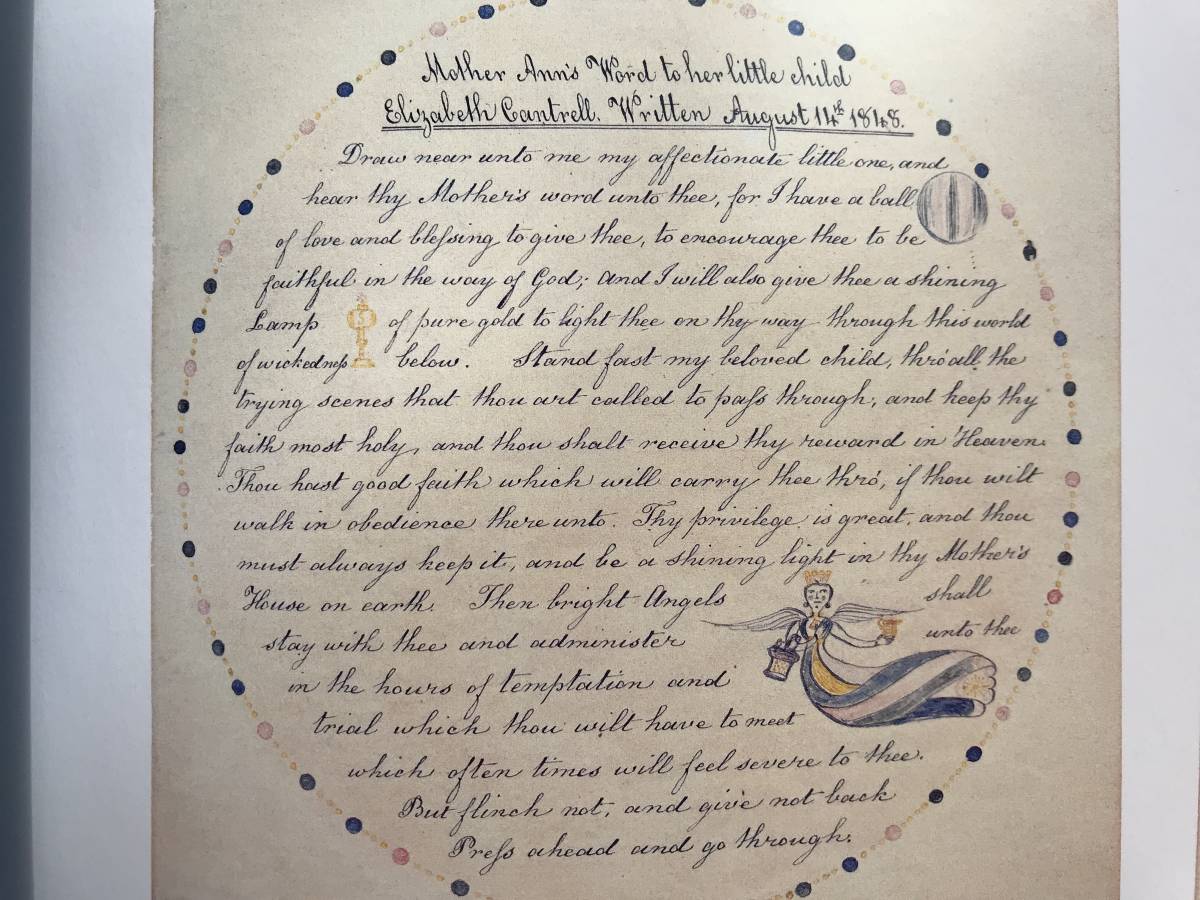 Mother Ann's Word to her little child
Elizabeth Cantrell. Written August 14th 1848.
Draw near unto me my affectionate little one, and
hear thy Mother's word unto thee, for I have a ball
of love and blessing to give thee, to encourage thee to be
faithful in the way of God; and I will also give thee a shining
Lamp of pure gold to light thee on thy way through this world
of wickedness below. Stand fast my beloved child, thro' all the
trying scenes that thou art called to pass through, and keep thy
faith most holy, and thou shalt receive thy reward in Heaven.
Thou hast good faith which will carry thee thro', if thou wilt
walk in obedience there unto. Thy privilege is great, and thou
must always keep it, and be a shining light in thy Mother's
House on earth. Then bright Angels shall
stay with thee and administer unto thee
in the hours of temptation and
trial which thou wilt have to meet
which often times will feel severe to thee.
But flinch not, and give not back
Press ahead and go through.